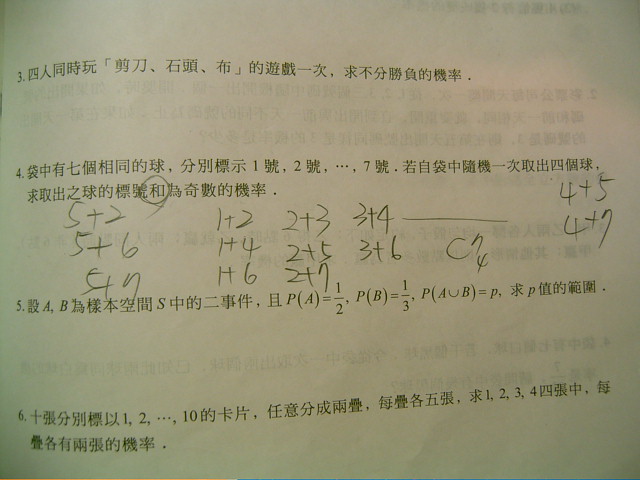 3.四人同時玩「剪刀、石頭、布」的遊戲一次，求不分勝負的機率．
4.袋中有七個相同的球，分別標示 1 號，2 號，…，7 號．若自袋中隨機一次取出四個球，
求取出之球的標號和為奇數的機率．
5+2 1+2 2+3 3+4 4+5
5+6 1+4 2+5 3+6 C⁷₄ 4+7
5+7 1+6 2+7
5.設 A, B 為樣本空間 S 中的二事件，且 P(A)=1/2, P(B)=1/3, P(A∪B)=p, 求 p 值的範圍．
6.十張分別標以 1, 2, …, 10 的卡片，任意分成兩疊，每疊各五張，求1, 2, 3, 4四張中，每
疊各有兩張的機率．